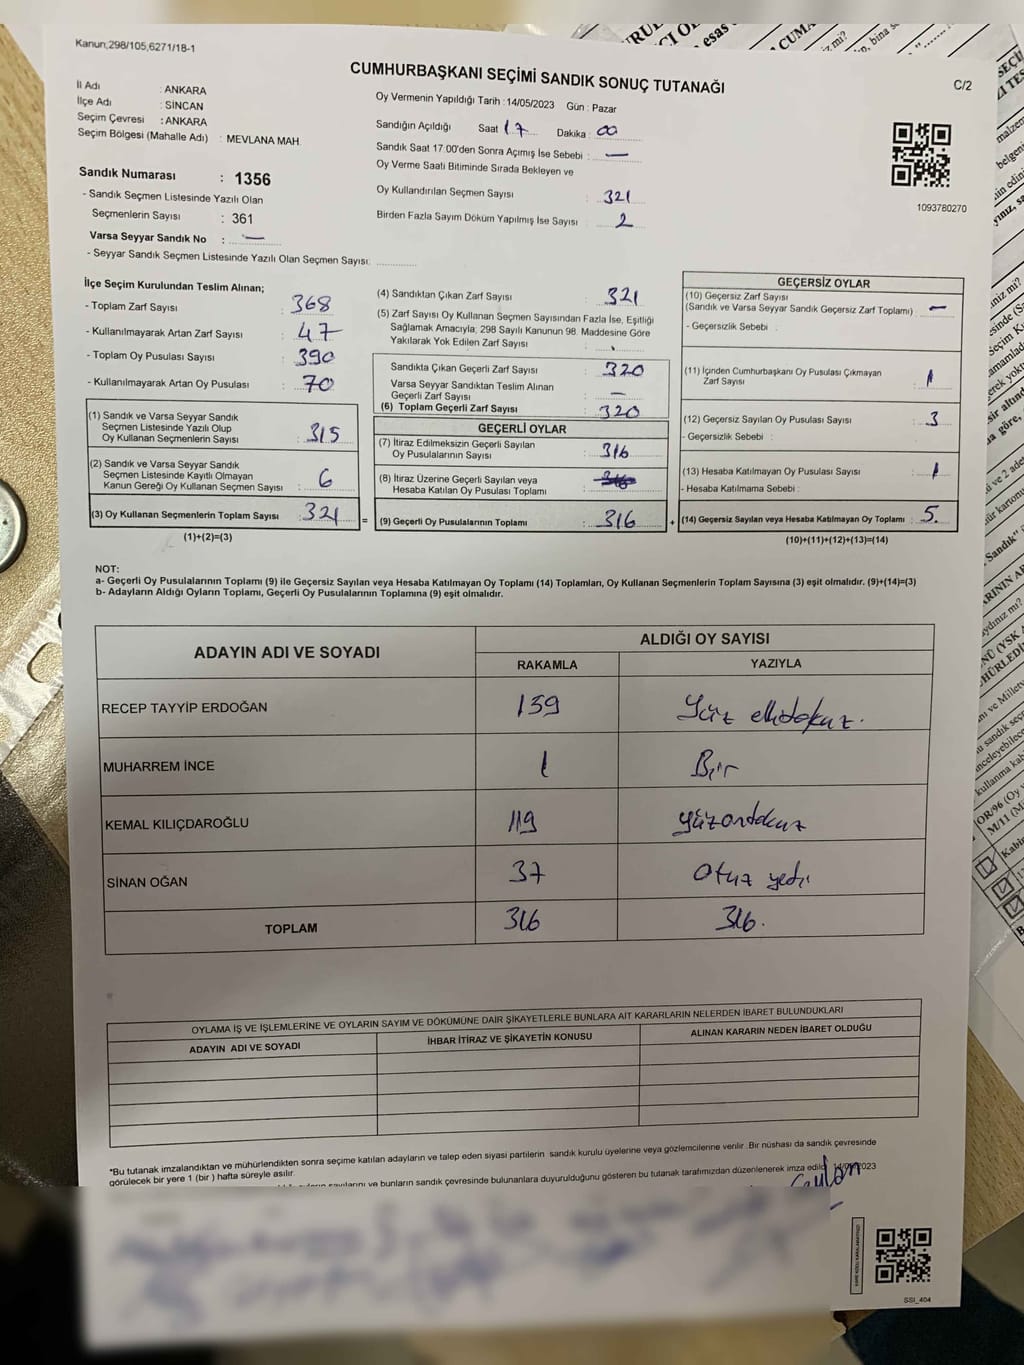 Kanun;298/105,6271/18-1
CUMHURBAŞKANI SEÇİMİ SANDIK SONUÇ TUTANAĞI
C/2
İl Adı : ANKARA
İlçe Adı : SİNCAN
Seçim Çevresi : ANKARA
Seçim Bölgesi (Mahalle Adı) : MEVLANA MAH.
Oy Vermenin Yapıldığı Tarih :14/05/2023 Gün : Pazar
Sandığın Açıldığı Saat 17 Dakika : 00
Sandık Saat 17.00'den Sonra Açımış İse Sebebi : —
Oy Verme Saati Bitiminde Sırada Bekleyen ve
Oy Kullandırılan Seçmen Sayısı : 321
Birden Fazla Sayım Döküm Yapılmış İse Sayısı : 2
1093780270
Sandık Numarası : 1356
- Sandık Seçmen Listesinde Yazılı Olan
Seçmenlerin Sayısı : 361
Varsa Seyyar Sandık No : —
- Seyyar Sandık Seçmen Listesinde Yazılı Olan Seçmen Sayısı:
İlçe Seçim Kurulundan Teslim Alınan;
- Toplam Zarf Sayısı : 368
- Kullanılmayarak Artan Zarf Sayısı : 47
- Toplam Oy Pusulası Sayısı : 390
- Kullanılmayarak Artan Oy Pusulası : 70
(1) Sandık ve Varsa Seyyar Sandık
Seçmen Listesinde Yazılı Olup
Oy Kullanan Seçmenlerin Sayısı : 315
(2) Sandık ve Varsa Seyyar Sandık
Seçmen Listesinde Kayıtlı Olmayan
Kanun Gereği Oy Kullanan Seçmen Sayısı : 6
(3) Oy Kullanan Seçmenlerin Toplam Sayısı : 321
(1)+(2)=(3)
(4) Sandıktan Çıkan Zarf Sayısı : 321
(5) Zarf Sayısı Oy Kullanan Seçmen Sayısından Fazla İse, Eşitliği
Sağlamak Amacıyla; 298 Sayılı Kanunun 98. Maddesine Göre
Yakılarak Yok Edilen Zarf Sayısı :
Sandıkta Çıkan Geçerli Zarf Sayısı : 320
Varsa Seyyar Sandıktan Teslim Alınan
Geçerli Zarf Sayısı : —
(6) Toplam Geçerli Zarf Sayısı : 320
GEÇERLİ OYLAR
(7) İtiraz Edilmeksizin Geçerli Sayılan
Oy Pusulalarının Sayısı : 316
(8) İtiraz Üzerine Geçerli Sayılan veya
Hesaba Katılan Oy Pusulası Toplamı :
= (9) Geçerli Oy Pusulalarının Toplamı : 316
GEÇERSİZ OYLAR
(10) Geçersiz Zarf Sayısı
(Sandık ve Varsa Seyyar Sandık Geçersiz Zarf Toplamı) : —
- Geçersizlik Sebebi :
(11) İçinden Cumhurbaşkanı Oy Pusulası Çıkmayan
Zarf Sayısı : 1
(12) Geçersiz Sayılan Oy Pusulası Sayısı : 3
- Geçersizlik Sebebi :
(13) Hesaba Katılmayan Oy Pusulası Sayısı : 1
- Hesaba Katılmama Sebebi :
+ (14) Geçersiz Sayılan veya Hesaba Katılmayan Oy Toplamı : 5.
(10)+(11)+(12)+(13)=(14)
NOT:
a- Geçerli Oy Pusulalarının Toplamı (9) ile Geçersiz Sayılan veya Hesaba Katılmayan Oy Toplamı (14) Toplamları, Oy Kullanan Seçmenlerin Toplam Sayısına (3) eşit olmalıdır. (9)+(14)=(3)
b- Adayların Aldığı Oyların Toplamı, Geçerli Oy Pusulalarının Toplamına (9) eşit olmalıdır.
ADAYIN ADI VE SOYADI ALDIĞI OY SAYISI
RAKAMLA YAZIYLA
RECEP TAYYİP ERDOĞAN 159 Yüz ellidokuz.
MUHARREM İNCE 1 Bir
KEMAL KILIÇDAROĞLU 119 yüzondokuz
SİNAN OĞAN 37 Otuz yedi
TOPLAM 316 316.
OYLAMA İŞ VE İŞLEMLERİNE VE OYLARIN SAYIM VE DÖKÜMÜNE DAİR ŞİKAYETLERLE BUNLARA AİT KARARLARIN NELERDEN İBARET BULUNDUKLARI
ADAYIN ADI VE SOYADI İHBAR İTİRAZ VE ŞİKAYETİN KONUSU ALINAN KARARIN NEDEN İBARET OLDUĞU
*Bu tutanak imzalandıktan ve mühürlendikten sonra seçime katılan adayların ve talep eden siyasi partilerin sandık kurulu üyelerine veya gözlemcilerine verilir. Bir nüshası da sandık çevresinde
görülecek bir yere 1 (bir) hafta süreyle asılır.
sayılarını ve bunların sandık çevresinde bulunanlara duyurulduğunu gösteren bu tutanak tarafımızdan düzenlenerek imza edildi. 14/05/2023
SSI_404